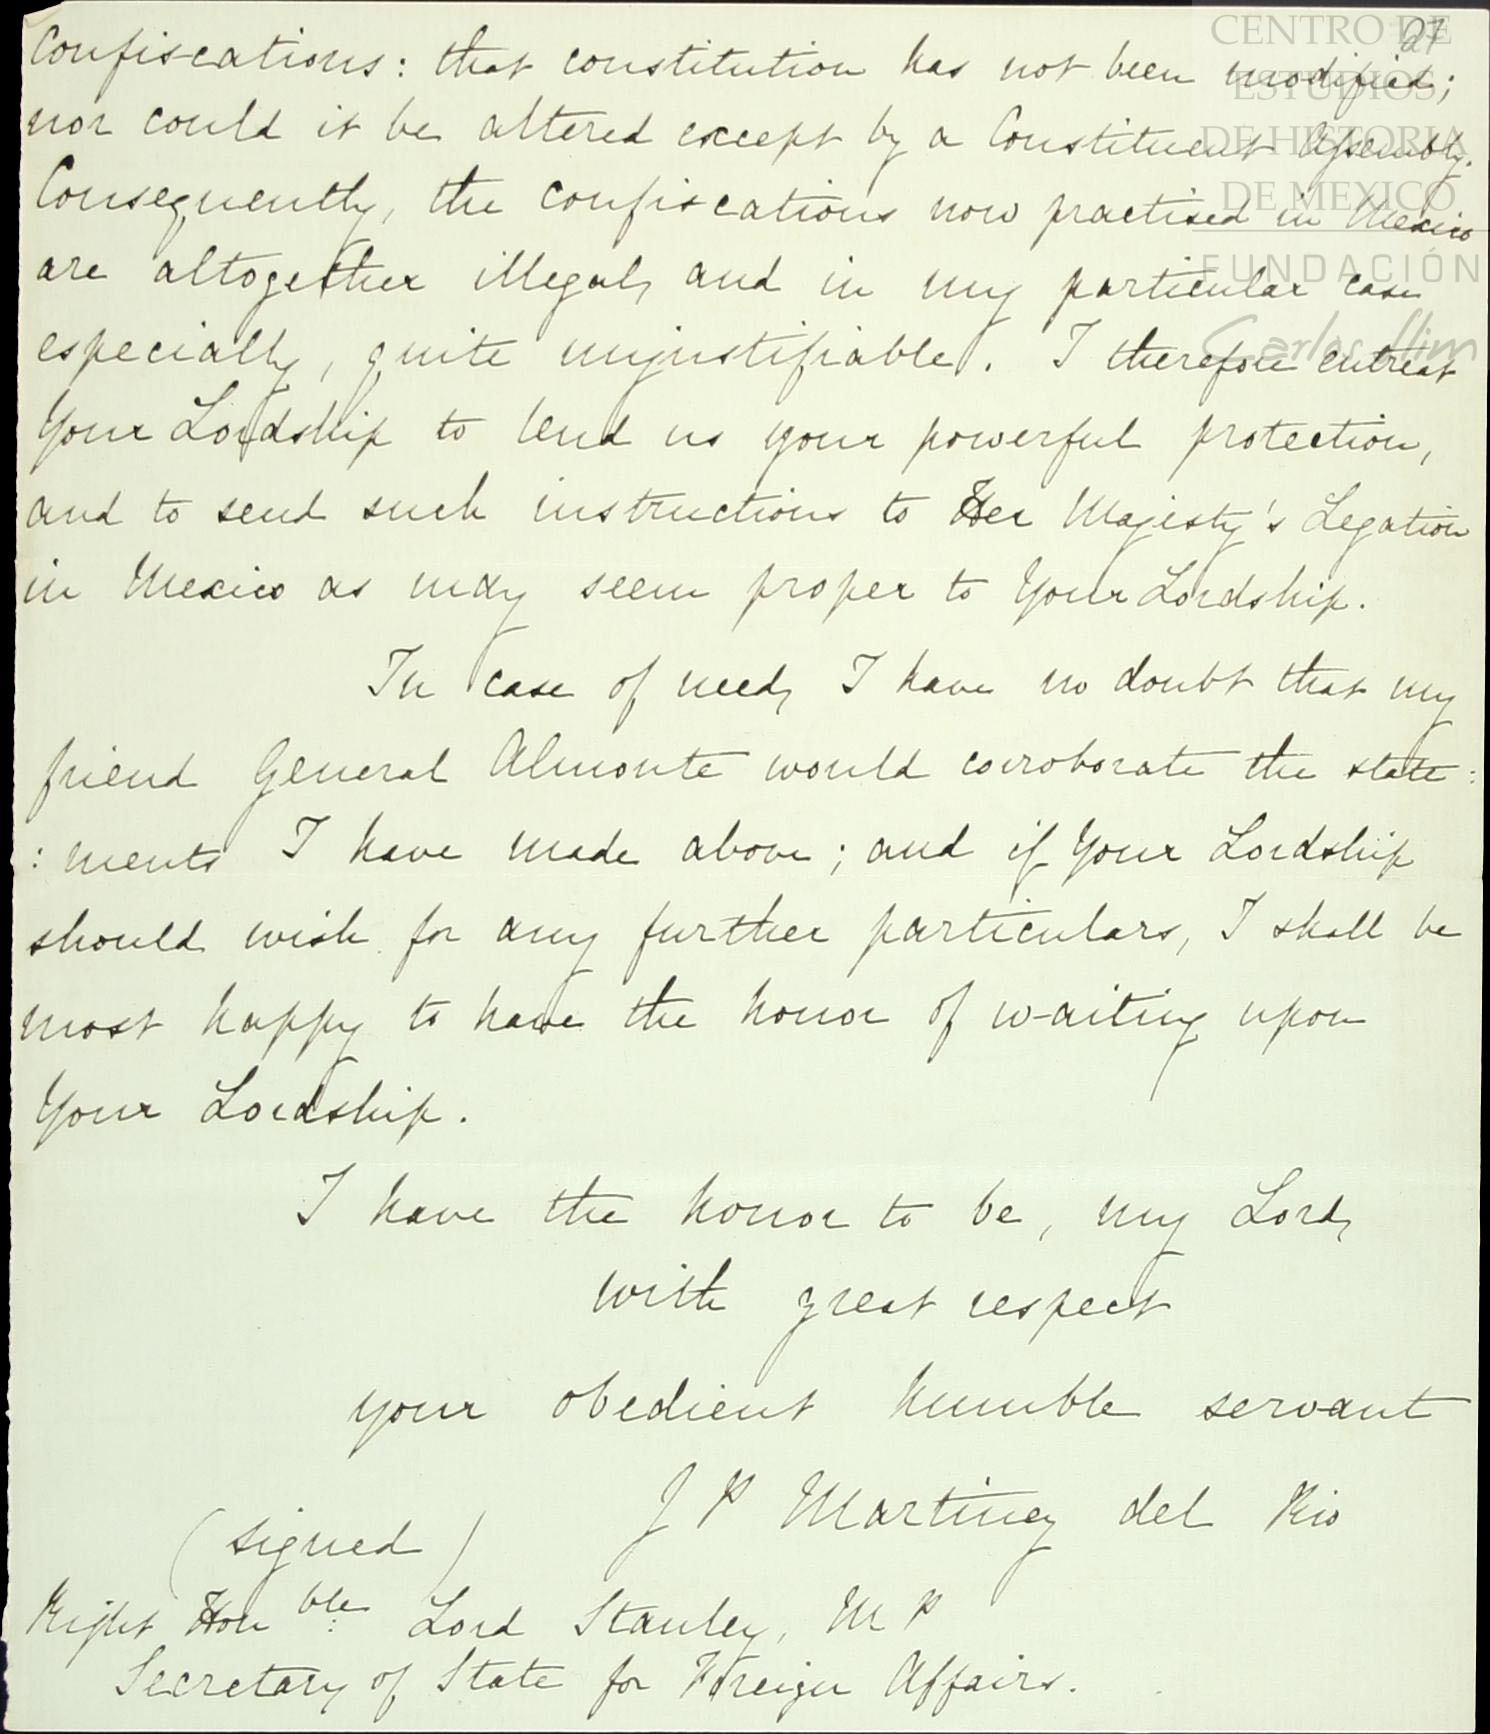 27
CENTRO DE
ESTUDIOS
DE HISTORIA
DE MEXICO
FUNDACIÓN
Carlos Slim
Confiscations: that constitution has not been modified;
nor could it be altered except by a Constituent Assembly.
Consequently, the confiscations now practised in Mexico
are altogether illegal, and in my particular case
especially, quite unjustifiable. I therefore entreat
Your Lordship to lend us your powerful protection,
and to send such instructions to Her Majesty's Legation
in Mexico as may seem proper to Your Lordship.
In case of need, I have no doubt that my
friend General Almonte would corroborate the state:
:ments I have made above; and if Your Lordship
should wish for any further particulars, I shall be
most happy to have the honor of waiting upon
Your Lordship.
I have the honor to be, my Lord,
with great respect
your obedient humble servant
J P Martinez del Rio
(signed)
Right Honble: Lord Stanley, M P
Secretary of State for Foreign Affairs.